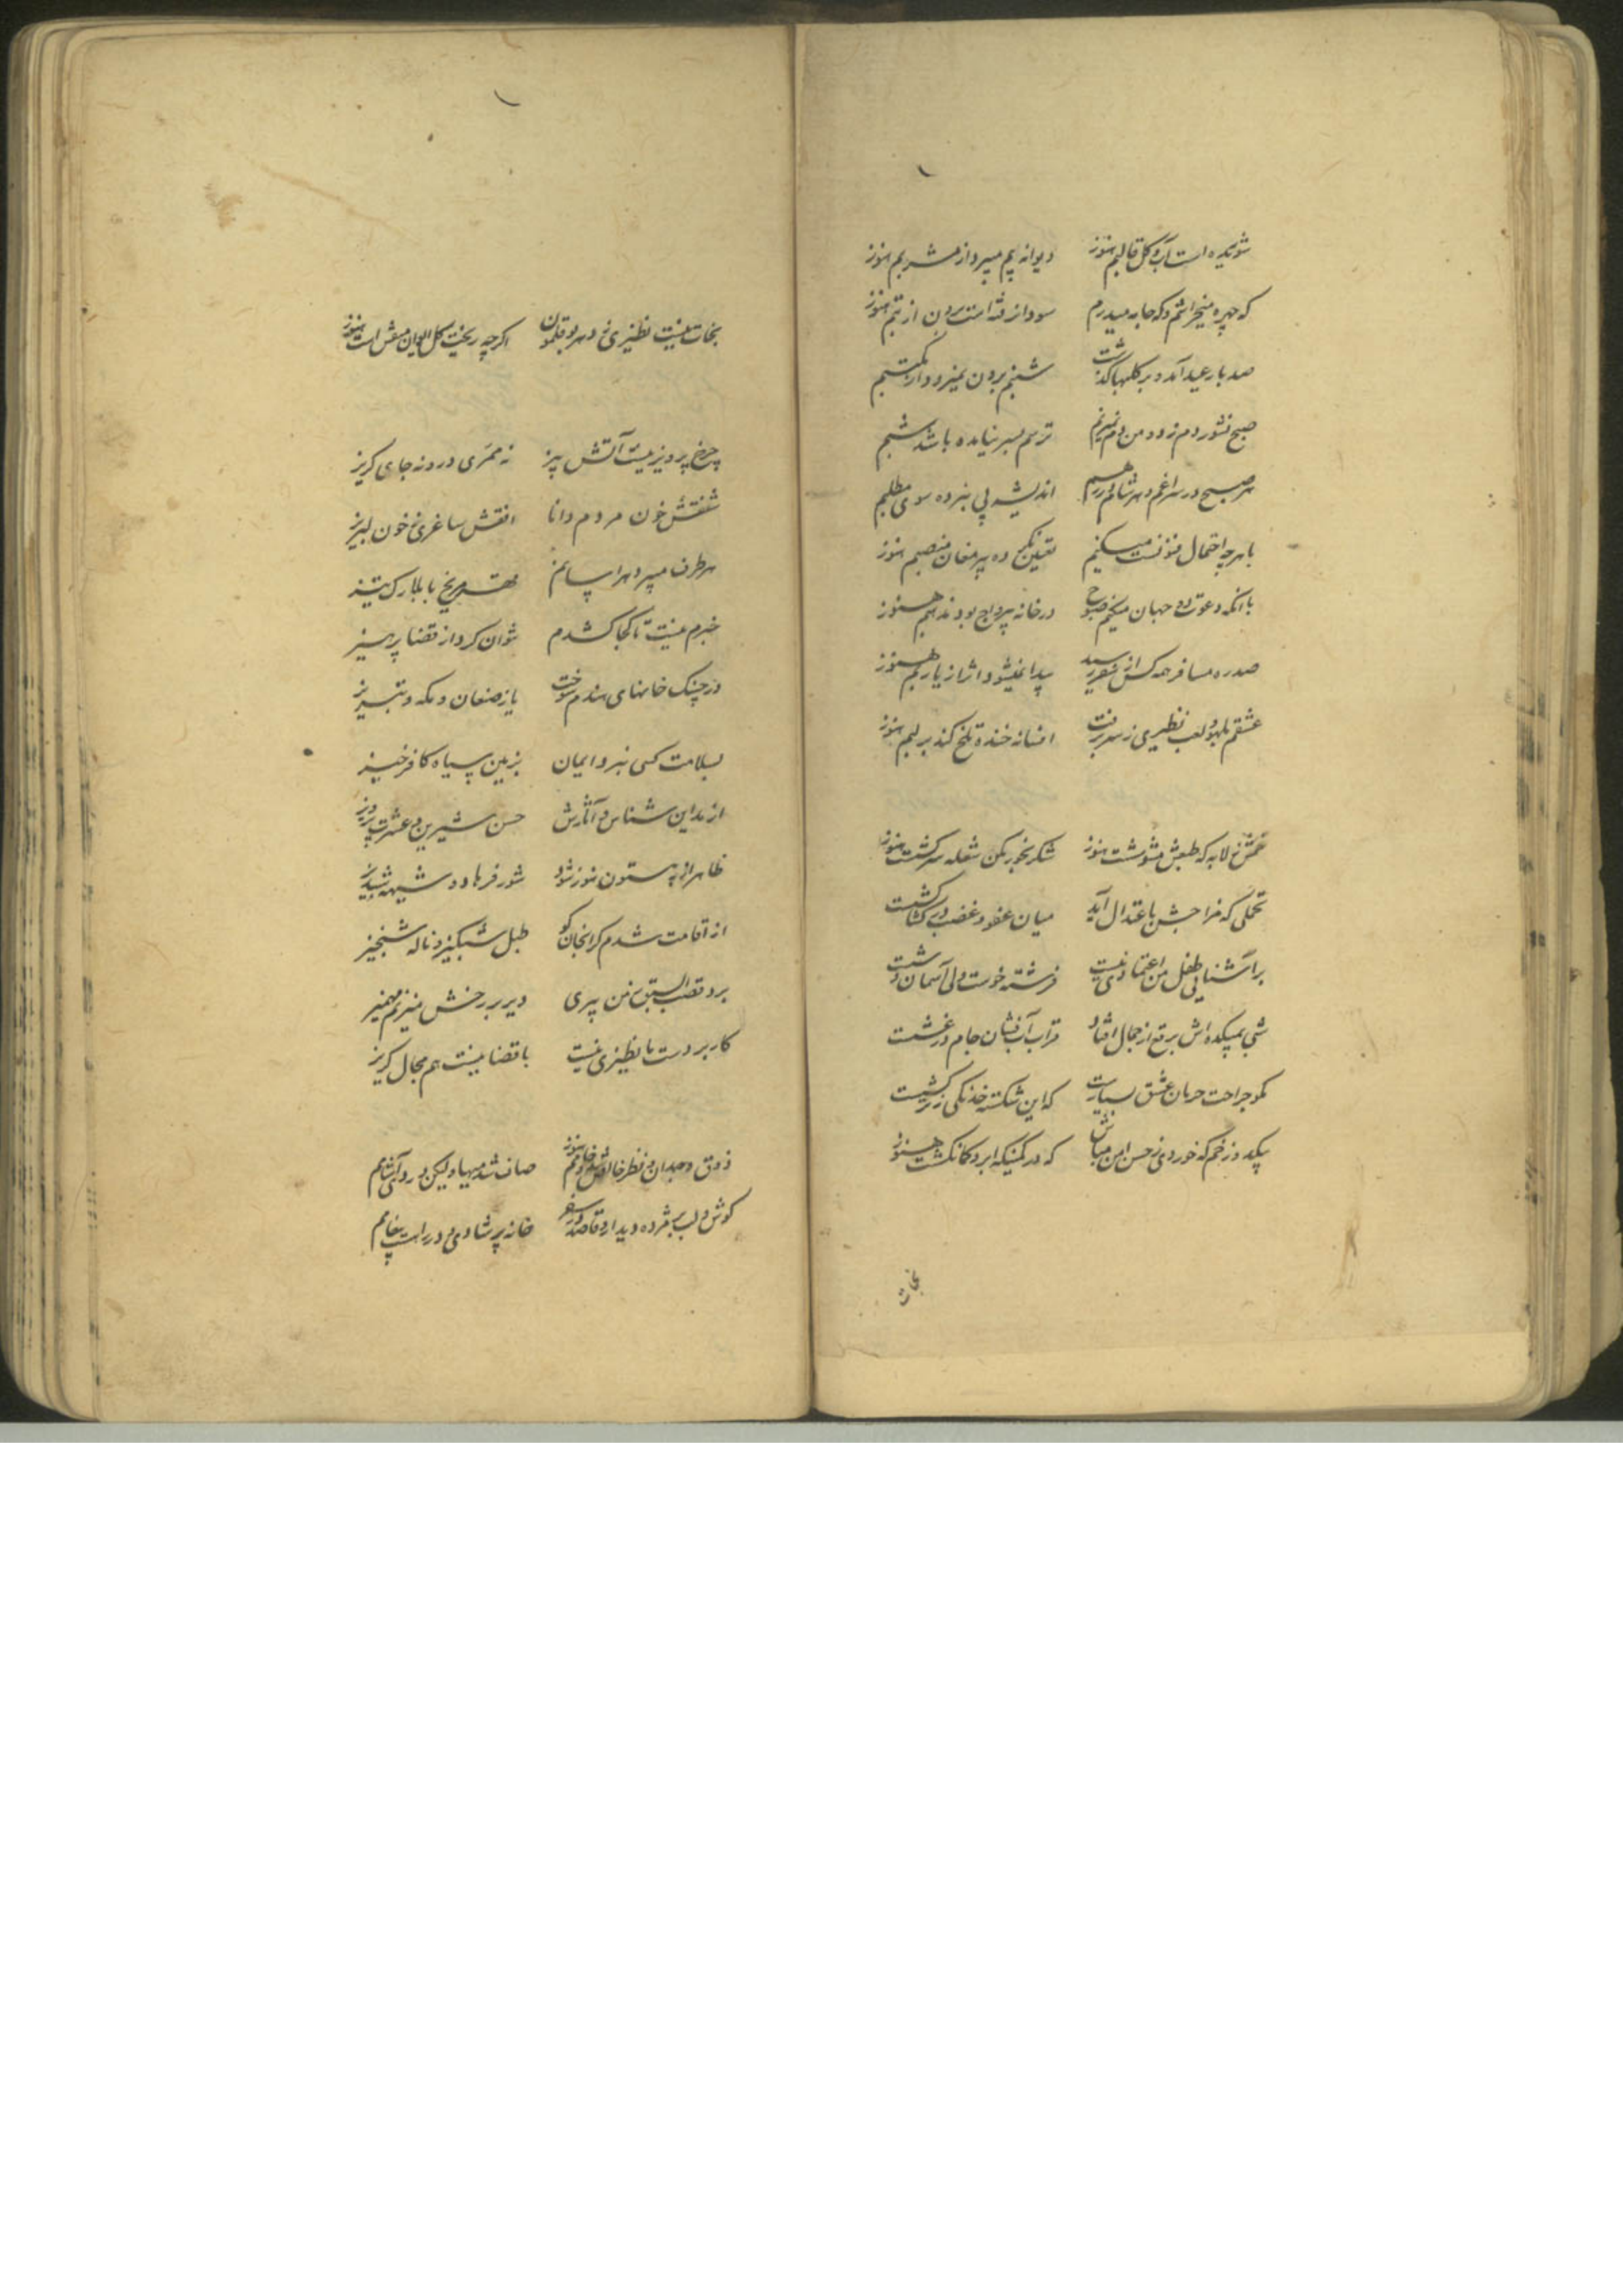 شوریده است آب و گل قالبم هنوز دیوانه میپرد از مشربم هنوز
که چهره میخراشم و که جامه میدرم سودا نرفته است برون از تبم هنوز
صد بار عید آمد و بر کلبه‌ام گذشت شنبه برون نمیرود از مکتبم
صبح نشور دم زد و من دم نمیزنم ترسم بسر نیامده باشد شبم
هر صبح در سراغم و هر شام در رهم اندیشه پی نبرده سوی مطلبم
با هر چه احتمال میکنیم تعیین نکرده پیر مغان منصبم هنوز
با آنکه دعوت دو جهان میکنم صبوح در خانه هنوز
صد ره مسافر همه کس از سفر رسید پیدا نمیشود اثر از یاربم هنوز
عشقم بلهو و لعب نظیری ز سر نرفت افسانه خنده تلخ کند بر لبم هنوز
لابه که طبعش مشوشست هنوز شکر بخور مکن شعله سرکشست هنوز
تحملی که مزاجش باعتدال آید میان عفو و غضب در کشاکشست
بر آشنایی طفل من اعتمادی نیست فرشته خوست ولی آسمان وشست
شبی بمیکده‌اش برقع از جمال افتاد قرابه آب‌فشان جام در غشست
مگو جراحت حرمان عشق بسیارست که این شکسته خدنگی ز ترکشست
بیکدو زخم که خوردی ز حسن امن مباش که در کمینگه ابرو کمانکشست هنوز
نجات
نجات نیست نظیری ز دهر بوقلمون اگر چه ریخت گل ایوان منقش است هنوز
چرخ پرویز نیست آتش بیز نه ممری درو نه جای گریز
شفقش خون مردم دانا افقش ساغری ز خون لبریز
هر طرف میپرد مریخ با بلارک تیز
خبرم نیست تا کجا کشدم نتوان کرد از قضا پرهیز
در چنگ خانهای هندم سوخت یاد صنعان و مکه و تبریز
بسلامت کسی نبرد ایمان زمین سیاه کافر خیز
از مداین شناس و آثارش حسن شیرین و عشرت پرویز
ظاهر از بیستون هنوز شود شور فرهاد و شیهه شبدیز
از اقامت شدم گرانجان کو طبل شبگیر و ناله شبخیز
برد قصب السبق ز من پیری دیر بر رخش میزنم مهمیز
کار بر دست ما نظیری نیست با قضا نیست هم مجال گریز
ذوق وجدان و نظر خالص شد و خامم هنوز صاف شد مهیا و لیکن درد آشامم
گوش و لب پر مژده دیدار و قاصد در سفر خانه پر شادی و در راهست پیغامم